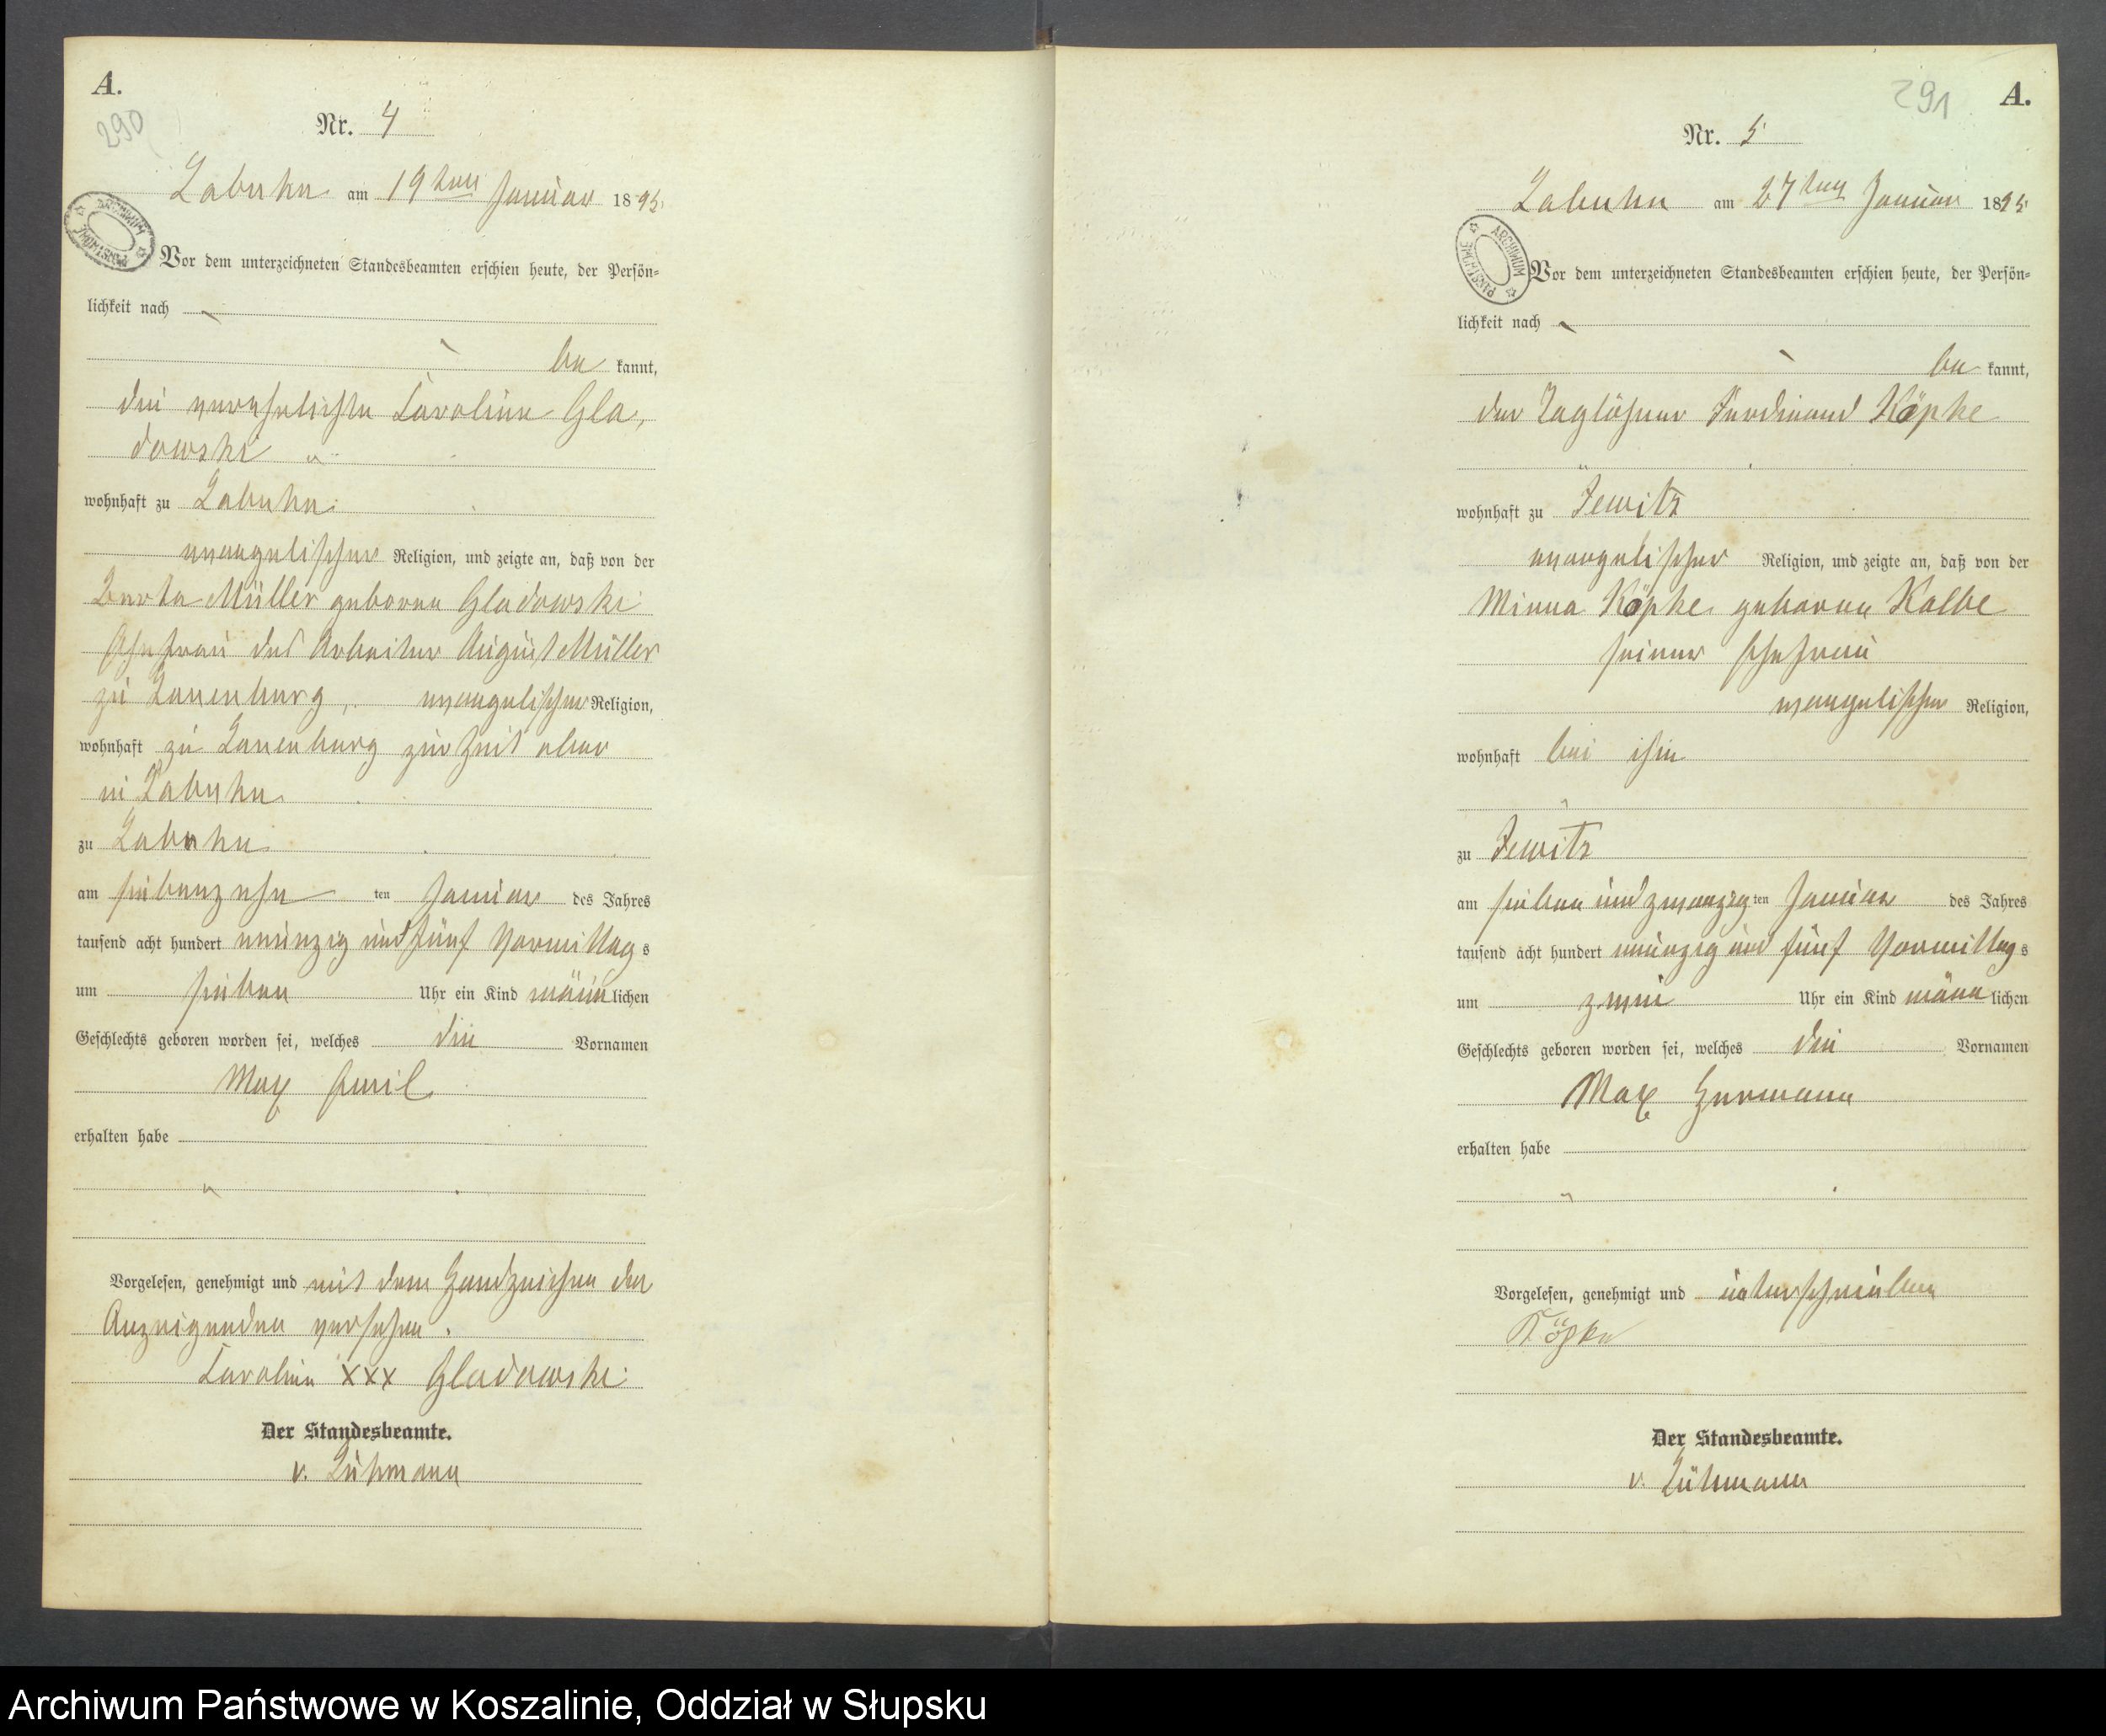 A.
290
Nr. 4
Labuhn am 19ten Januar 1895
ARCHIWUM PAŃSTWOWE
Vor dem unterzeichneten Standesbeamten erschien heute, der Persön=
lichkeit nach
be kannt,
die verehelichte Caroline Gla,
dowski
wohnhaft zu Labuhn
evangelischer Religion, und zeigte an, daß von der
Berta Müller geborene Gladowski
Ehefrau des Arbeiter August Müller
zu Lauenburg, evangelischer Religion,
wohnhaft zu Lauenburg zur Zeit aber
in Labuhn
zu Labuhn
am siebenzehn ten Januar des Jahres
tausend acht hundert neunzig und fünf Vormittag s
um sieben Uhr ein Kind männlichen
Geschlechts geboren worden sei, welches die Vornamen
Max Emil
erhalten habe
Vorgelesen, genehmigt und mit dem Handzeichen der
Anzeigenden versehen.
Caroline XXX Gladowski
Der Standesbeamte.
v. Lühmann
291 A.
Nr. 5
Labuhn am 27ten Januar 1895
ARCHIWUM PAŃSTWOWE
Vor dem unterzeichneten Standesbeamten erschien heute, der Persön=
lichkeit nach
be kannt,
der Taglöhner Ferdinand Köpke
wohnhaft zu Jewitz
evangelischer Religion, und zeigte an, daß von der
Minna Köpke geborene Kalbe
seiner Ehefrau
evangelischer Religion,
wohnhaft bei ihm
zu Jewitz
am sieben und zwanzig ten Januar des Jahres
tausend acht hundert neunzig und fünf Vormittag s
um zwei Uhr ein Kind männ lichen
Geschlechts geboren worden sei, welches die Vornamen
Max Hermann
erhalten habe
Vorgelesen, genehmigt und unterschrieben
Köpke
Der Standesbeamte.
v. Lühmann
Archiwum Państwowe w Koszalinie, Oddział w Słupsku